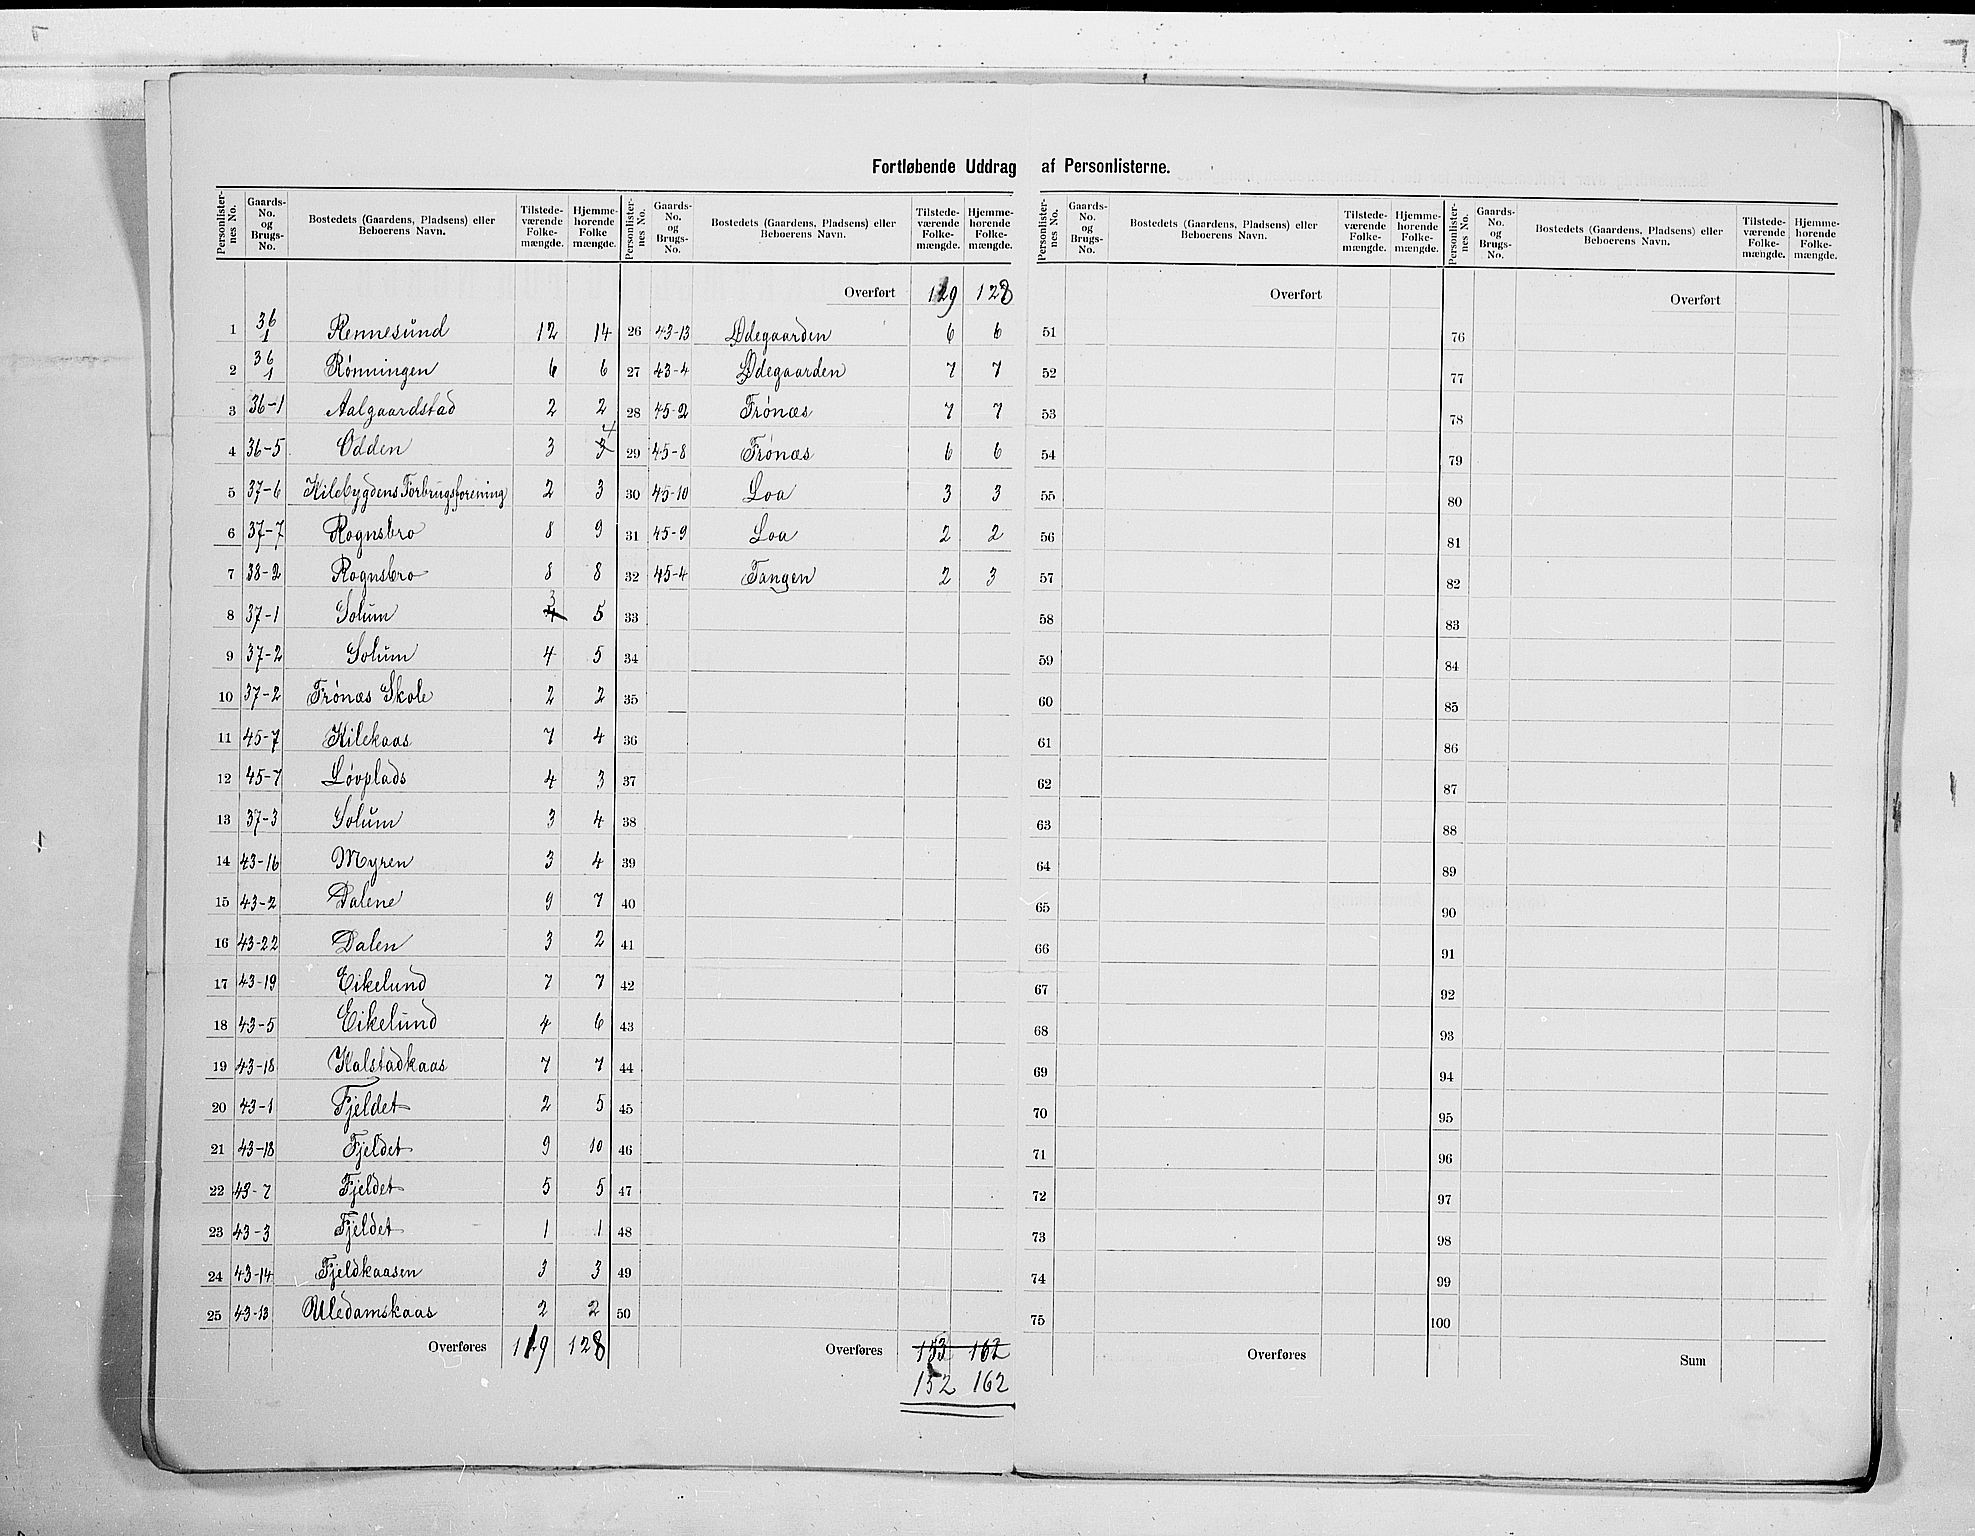 Fortløbende Uddrag af Personlisterne.
Personlister-nes No. Gaards-No. og Brugs-No. Bostedets (Gaardens, Pladsens) eller Beboerens Navn. Tilstede-værende Folke-mængde. Hjemme-hørende Folke mængde.
1 36/1 Rennesund 12 14
2 36/1 Rønningen 6 6
3 36-1 Aalgaardstad 2 2
4 36-5 Odden 3 3 4
5 37-6 Kilebygdens Forbrugsforening 2 3
6 37-7 Rognsbro 8 9
7 38-2 Rognsbro 8 8
8 37-1 Solum 4 3 5
9 37-2 Solum 4 5
10 37-2 Frónæs Skole 2 2
11 45-7 Kilekaas 7 4
12 45-7 Løvplads 4 3
13 37-3 Solum 3 4
14 43-16 Myren 3 4
15 43-2 Dalene 9 7
16 43-22 Dalen 3 2
17 43-19 Eikelund 7 7
18 43-5 Eikelund 4 6
19 43-18 Kalstadkaas 7 7
20 43-1 Fjeldet 2 5
21 43-18 Fjeldet 9 10
22 43-7 Fjeldet 5 5
23 43-3 Fjeldet 1 1
24 43-14 Fjeldkaasen 3 3
25 43-13 Uledamskaas 2 2
Overføres 119 128
Personlister-nes No. Gaards-No. og Brugs-No. Bostedets (Gaardens, Pladsens) eller Beboerens Navn. Tilstede-værende Folke-mængde. Hjemme-hørende Folke-mængde.
Overført 119 128
26 43-13 Ødegaarden 6 6
27 43-4 Ødegaarden 7 7
28 45-2 Frónæs 7 7
29 45-8 Frónæs 6 6
30 45-10 Loa 3 3
31 45-9 Loa 2 2
32 45-4 Tangen 2 3
33
34
35
36
37
38
39
40
41
42
43
44
45
46
47
48
49
50
Overføres 153 162
152 162
Personlister-nes No. Gaards-No. og Brugs-No. Bostedets (Gaardens, Pladsens) eller Beboerens Navn. Tilstede-værende Folke-mængde. Hjemme-hørende Folke-mængde.
Overført
51
52
53
54
55
56
57
58
59
60
61
62
63
64
65
66
67
68
69
70
71
72
73
74
75
Overføres
Personlister-nes No. Gaards-No. og Brugs-No. Bostedets (Gaardens, Pladsens) eller Beboerens Navn. Tilstede-værende Folke-mængde. Hjemme-hørende Folke-mængde.
Overført
76
77
78
79
80
81
82
83
84
85
86
87
88
89
90
91
92
93
94
95
96
97
98
99
100
Sum